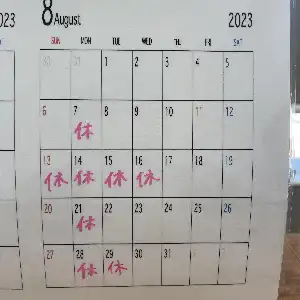 023
8 August 2023
SUN MON TUE WED THU FRI SAT
30 31 1 2 3 4 5
6 7 8 9 10 11 12
休
13 14 15 16 17 18 19
休 休 休 休
20 21 22 23 24 25 26
休
27 28 29 30 31
休 休